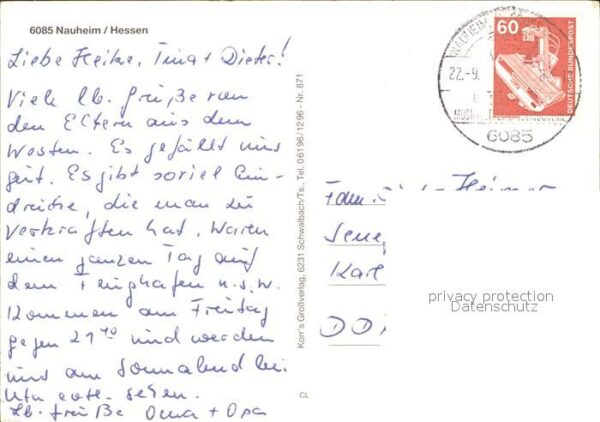 6085 Nauheim / Hessen
Liebe Heike, Tina + Dieter!
Viele lb. Grüße von
den Eltern aus dem
Westen. Es gefällt uns
gut. Es gibt soviel Ein-
drücke, die man zu
verkraften hat. Waren
einen ganzen Tag auf
dem Flughafen u.s.w.
Kommen am Freitag
gegen 21⁴⁰ und werden
uns am Sonnabend bei
Uta evtl. sehen.
Lb. Grüße Oma + Opa
Korr's Großverlag, 6231 Schwalbach/Ts., Tel. 06196/1296 · Nr. 871
CL
NAUHEIM
22.-9.
6085
60
DEUTSCHE BUNDESPOST
Fam.
Karl
DD
privacy protection
Datenschutz